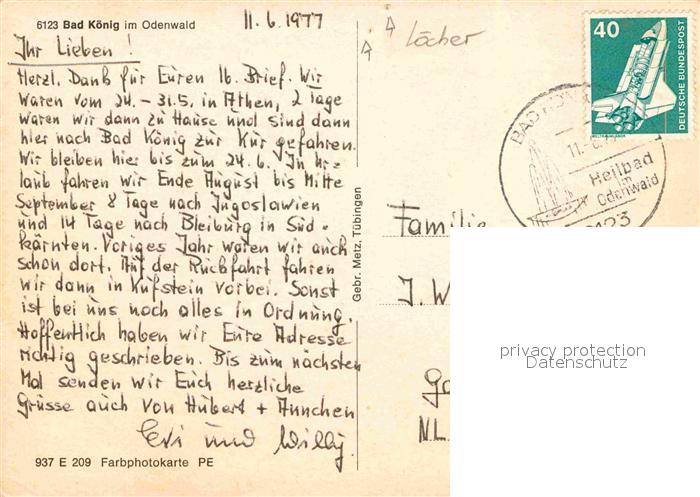 6123 Bad König im Odenwald
11.6.1977
Löcher
Ihr Lieben!
Herzl. Dank für Euren lb. Brief. Wir
waren vom 24. – 31.5. in Athen, 2 Tage
waren wir dann zu Hause und sind dann
hier nach Bad König zur Kur gefahren.
Wir bleiben hier bis zum 24.6. In Ur-
laub fahren wir Ende August bis Mitte
September 8 Tage nach Jugoslawien
und 14 Tage nach Bleiburg in Süd-
kärnten. Voriges Jahr waren wir auch
schon dort. Auf der Rückfahrt fahren
wir dann in Kufstein vorbei. Sonst
ist bei uns noch alles in Ordnung.
Hoffentlich haben wir Eure Adresse
richtig geschrieben. Bis zum nächsten
Mal senden wir Euch herzliche
Grüsse auch von Hubert + Annchen
Evi und Willy.
937 E 209 Farbphotokarte PE
Gebr. Metz, Tübingen
40
DEUTSCHE BUNDESPOST
BAD
11.-6.
Heilbad
im
Odenwald
6123
Familie
J. W
NL.
privacy protection
Datenschutz